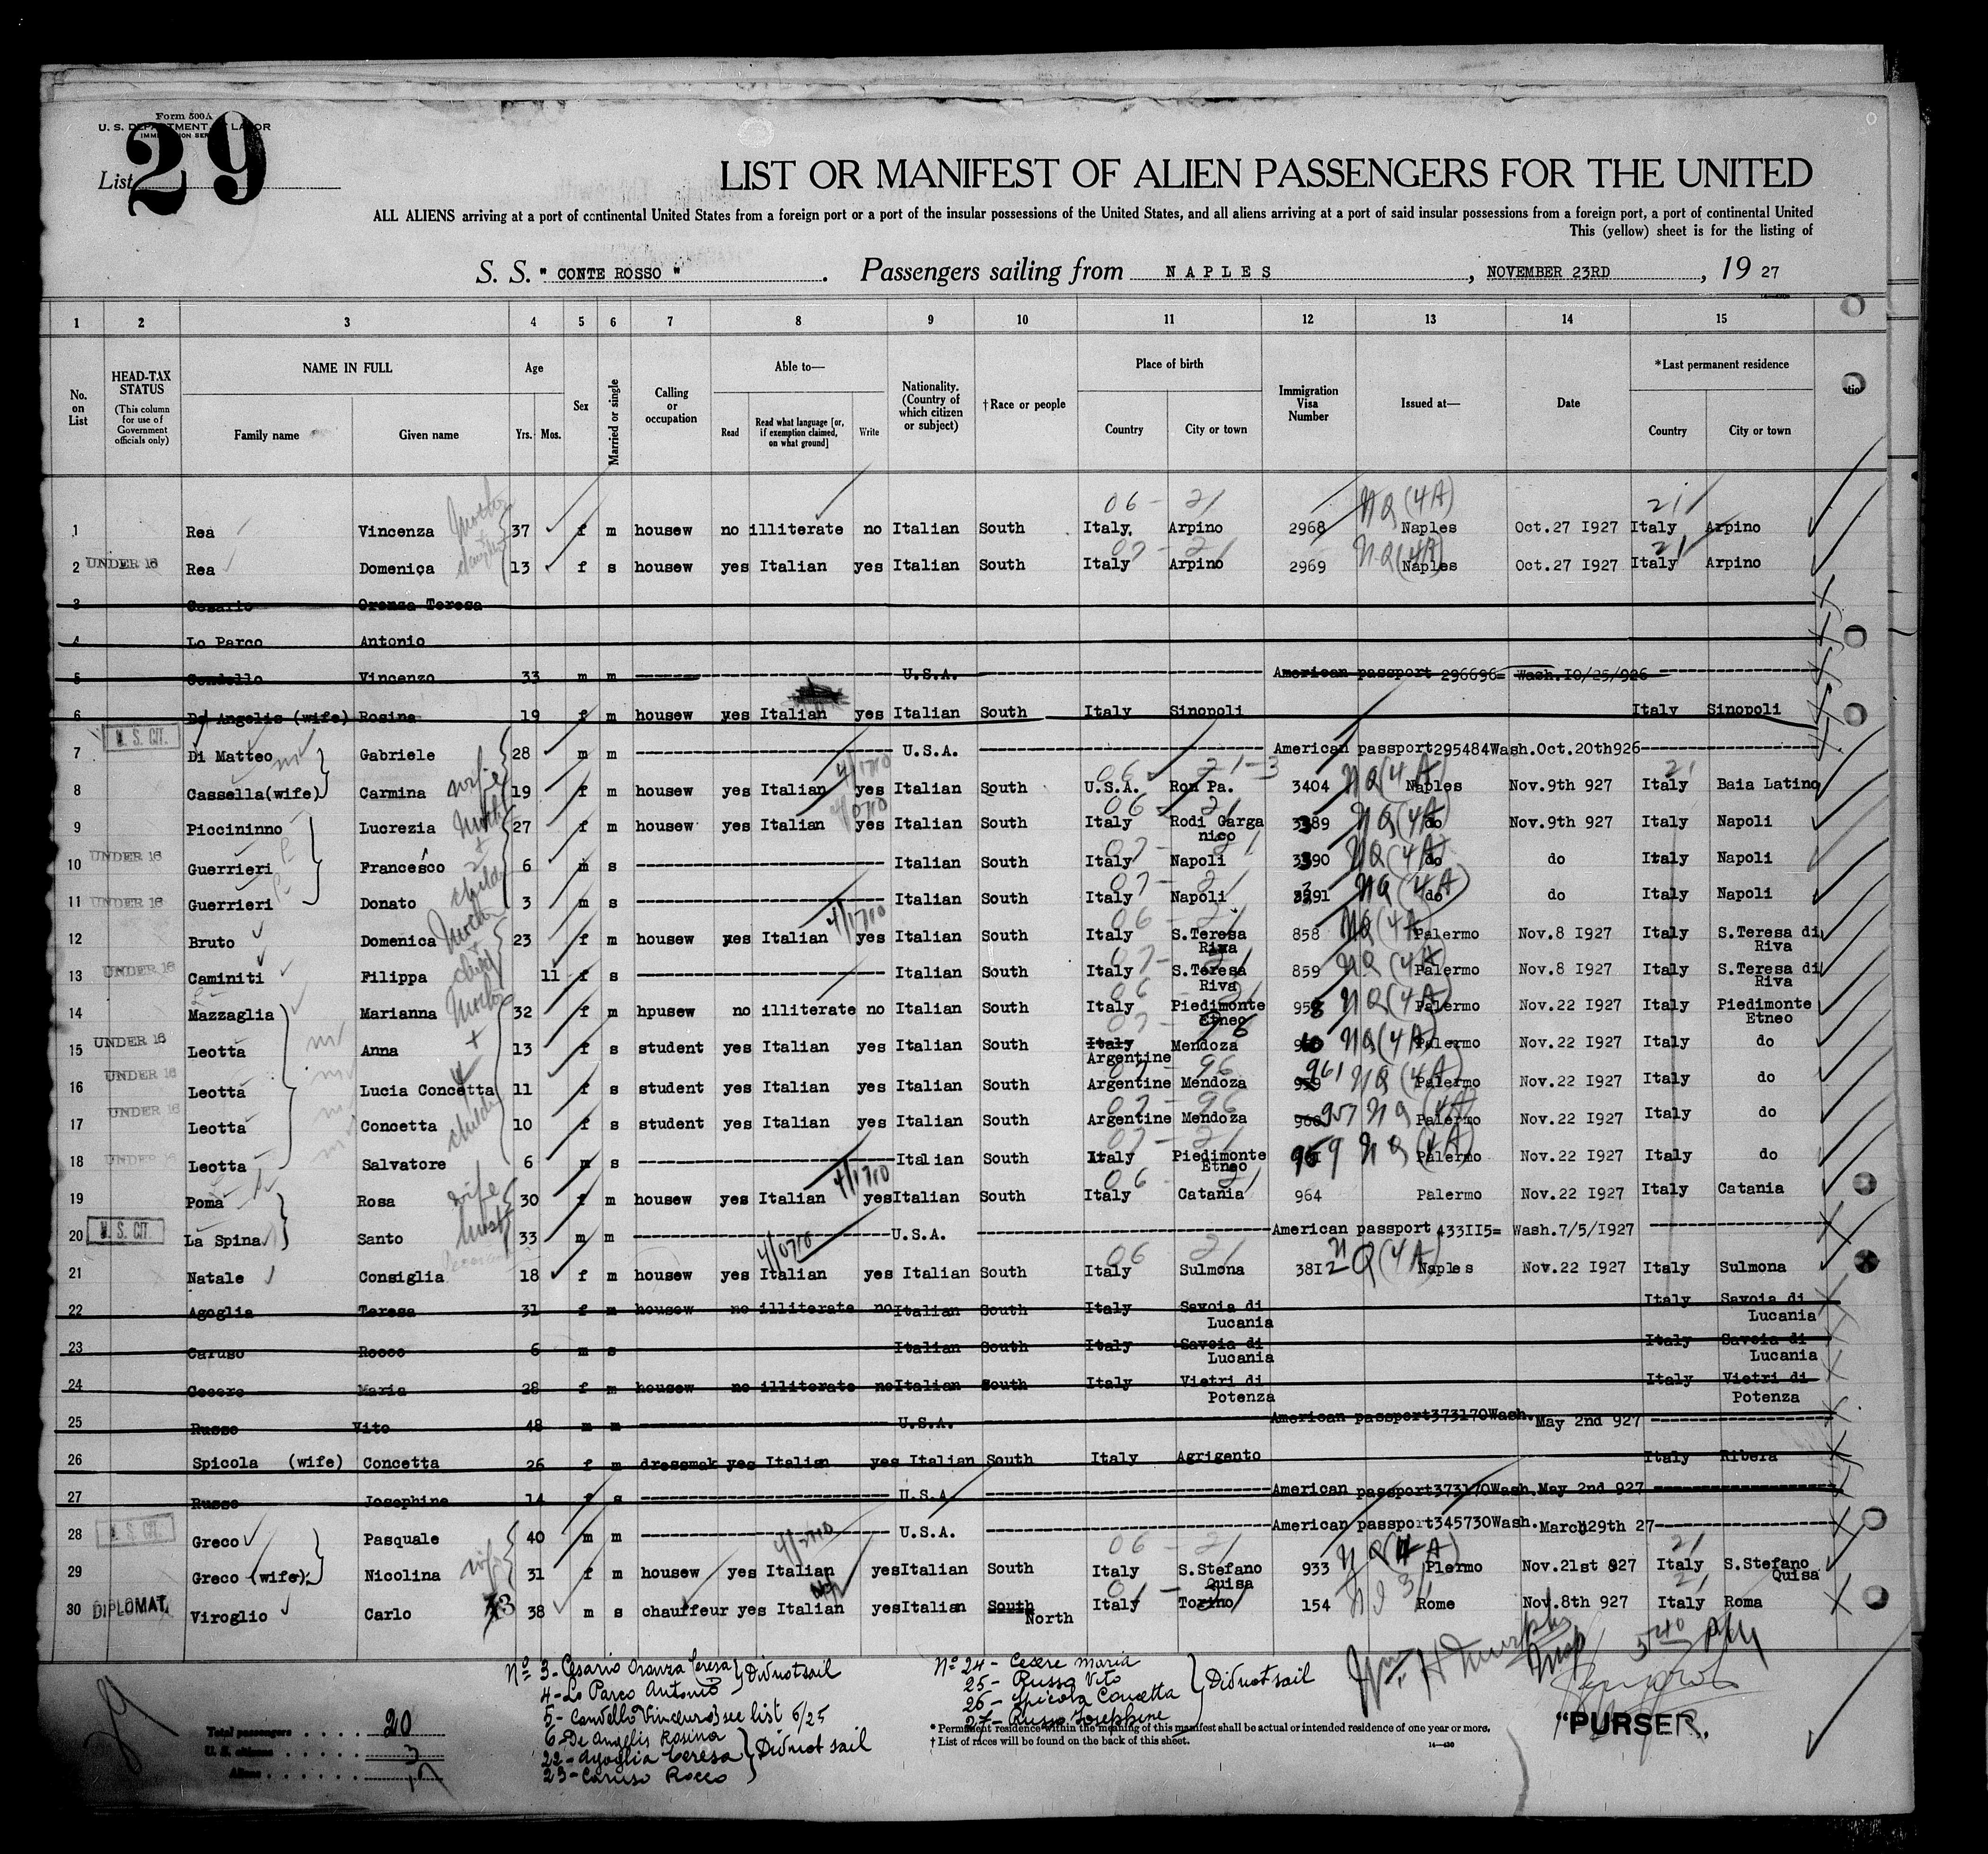 Form 500A
U. S. DEPARTMENT OF LABOR
IMMIGRATION SERVICE
29
List
LIST OR MANIFEST OF ALIEN PASSENGERS FOR THE UNITED
ALL ALIENS arriving at a port of continental United States from a foreign port or a port of the insular possessions of the United States, and all aliens arriving at a port of said insular possessions from a foreign port, a port of continental United
This (yellow) sheet is for the listing of
S. S. " CONTE ROSSO ". Passengers sailing from NAPLES, NOVEMBER 23RD, 19 27
1 2 3 4 5 6 7 8 9 10 11 12 13 14 15
No. on List
HEAD-TAX STATUS (This column for use of Government officials only)
NAME IN FULL Family name Given name
Age Yrs. Mos.
Sex
Married or single
Calling or occupation
Able to— Read Read what language [or, if exemption claimed, on what ground] Write
Nationality. (Country of which citizen or subject)
† Race or people
Place of birth Country City or town
Immigration Visa Number
Issued at—
Date
*Last permanent residence Country City or town
1 Rea Vincenza 37 f m housew no illiterate no Italian South Italy, Arpino 2968 NQ (4A) Naples Oct.27 I927 Italy Arpino
2 UNDER 16 Rea Domenica 13 f s housew yes Italian yes Italian South Italy Arpino 2969 NQ (4A) Naples Oct.27 I927 Italy Arpino
3 Cesario Oronza Teresa
4 Lo Parco Antonio
5 Condello Vincenzo 33 m m U.S.A. American passport 296696= Wash.IO/25/926
6 De Angelis (wife) Rosina 19 f m housew yes Italian yes Italian South Italy Sinopoli Italy Sinopoli
7 U. S. CIT. Di Matteo Gabriele 28 m m U.S.A. American passport295484Wash.Oct.20th926
8 Cassella(wife) Carmina wife 19 f m housew yes Italian yes Italian South U.S.A. Ron Pa. 3404 NQ (4A) Naples Nov.9th 927 Italy Baia Latino
9 Piccininno Lucrezia 27 f m housew yes Italian yes Italian South Italy Rodi Garga nico 3389 NQ (4A) do Nov.9th 927 Italy Napoli
10 UNDER 16 Guerrieri Francesco 6 m s Italian South Italy Napoli 3390 NQ (4A) do do Italy Napoli
11 UNDER 16 Guerrieri Donato 3 m s Italian South Italy Napoli 3391 NQ (4A) do do Italy Napoli
12 Bruto Domenica 23 f m housew yes Italian yes Italian South Italy S.Teresa Riva 858 NQ (4A) Palermo Nov.8 I927 Italy S.Teresa di Riva
13 UNDER 16 Caminiti Filippa child 11 f s Italian South Italy S.Teresa Riva 859 NQ (4A) Palermo Nov.8 I927 Italy S.Teresa di Riva
14 Mazzaglia Marianna 32 f m hpusew no illiterate no Italian South Italy Piedimonte Etneo 958 NQ (4A) Palermo Nov.22 I927 Italy Piedimonte Etneo
15 UNDER 16 Leotta Anna 13 f s student yes Italian yes Italian South Italy Argentine Mendoza 960 NQ (4A) Palermo Nov.22 I927 Italy do
16 UNDER 16 Leotta Lucia Concetta 11 f s student yes Italian yes Italian South Argentine Mendoza 959 961 NQ (4A) Palermo Nov.22 I927 Italy do
17 UNDER 16 Leotta Concetta 10 f s student yes Italian yes Italian South Argentine Mendoza 957 NQ (4A) Palermo Nov.22 I927 Italy do
18 UNDER 16 Leotta Salvatore 6 m s Italian South Italy Piedimonte Etneo 959 NQ (4A) Palermo Nov.22 I927 Italy do
19 Poma Rosa wife 30 f m housew yes Italian yes Italian South Italy Catania 964 Palermo Nov.22 I927 Italy Catania
20 U. S. CIT. La Spina Santo 33 m m U.S.A. American passport 433II5= Wash.7/5/I927
21 Natale Consiglia 18 f m housew yes Italian yes Italian South Italy Sulmona 38I2 NQ (4A) Naples Nov.22 I927 Italy Sulmona
22 Agoglia Teresa 31 f m housew no illiterate no Italian South Italy Savoia di Lucania Italy Savoia di Lucania
23 Caruso Rocco 6 m s Italian South Italy Savoia di Lucania Italy Savoia di Lucania
24 Cecere Maria 28 f m housew no illiterate no Italian South Italy Vietri di Potenza Italy Vietri di Potenza
25 Russo Vito 48 m m U.S.A. American passport373170Wash. May 2nd 927
26 Spicola (wife) Concetta 26 f m dressmak yes Italian yes Italian South Italy Agrigento Italy Ribera
27 Russo Josephine 14 f s U.S.A. American passport373170Wash.May 2nd 927
28 U. S. CIT. Greco Pasquale 40 m m U.S.A. American passport345730Wash. March 29th 27
29 Greco (wife) Nicolina wife 31 f m housew yes Italian yes Italian South Italy S.Stefano Quisa 933 NQ (4A) Plermo Nov.21st 927 Italy S.Stefano Quisa
30 DIPLOMAT. Viroglio Carlo 38 m s chauffeur yes Italian yes Italian South North Italy Torino 154 Rome Nov.8th 927 Italy Roma
No 3- Cesario Oronza Teresa
4- Lo Parco Antonio } Did not sail
5- Condello Vincenzo see list 6/25
6- De Angelis Rosina
22- Agoglia Teresa
23- Caruso Rocco } Did not sail
No 24- Cecere Maria
25- Russo Vito
26- Spicola Concetta
27- Russo Josephine } Did not sail
540 PM
Total passengers 20
U. S. citizens 3
Aliens 17
29
* Permanent residence within the meaning of this manifest shall be actual or intended residence of one year or more.
† List of races will be found on the back of this sheet.
"PURSER,